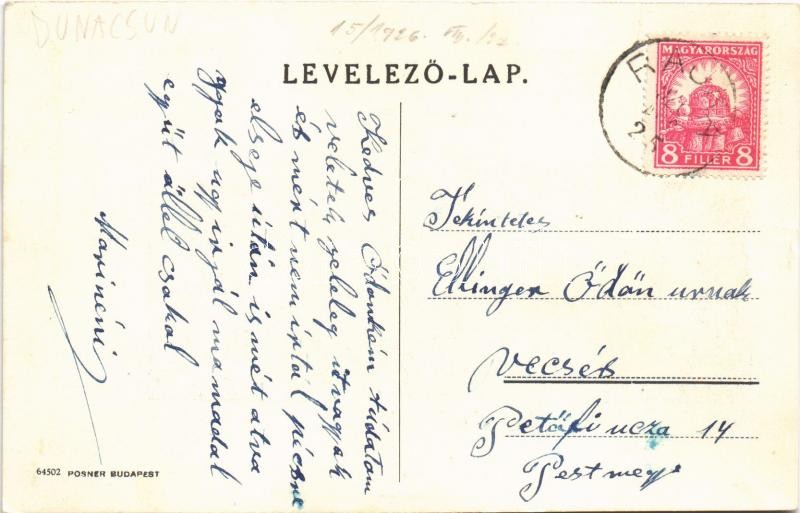 DUNACSUN
15/1926. VIII./22
LEVELEZŐ-LAP.
MAGYARORSZÁG
8 FILLÉR 8
RAJK
Kedves Ödönkém tudatom
veletek jeleleg itvagyok
és mért nem irtál pécsre
elseje után ismét otva
gyok ugy irjál mamadal
együt öllel csokol
Marinéni
Tekintetes
Ellinger Ödön urnak
Vecsés
Petőfi ucza 14
Pestmegye
64502 POSNER BUDAPEST